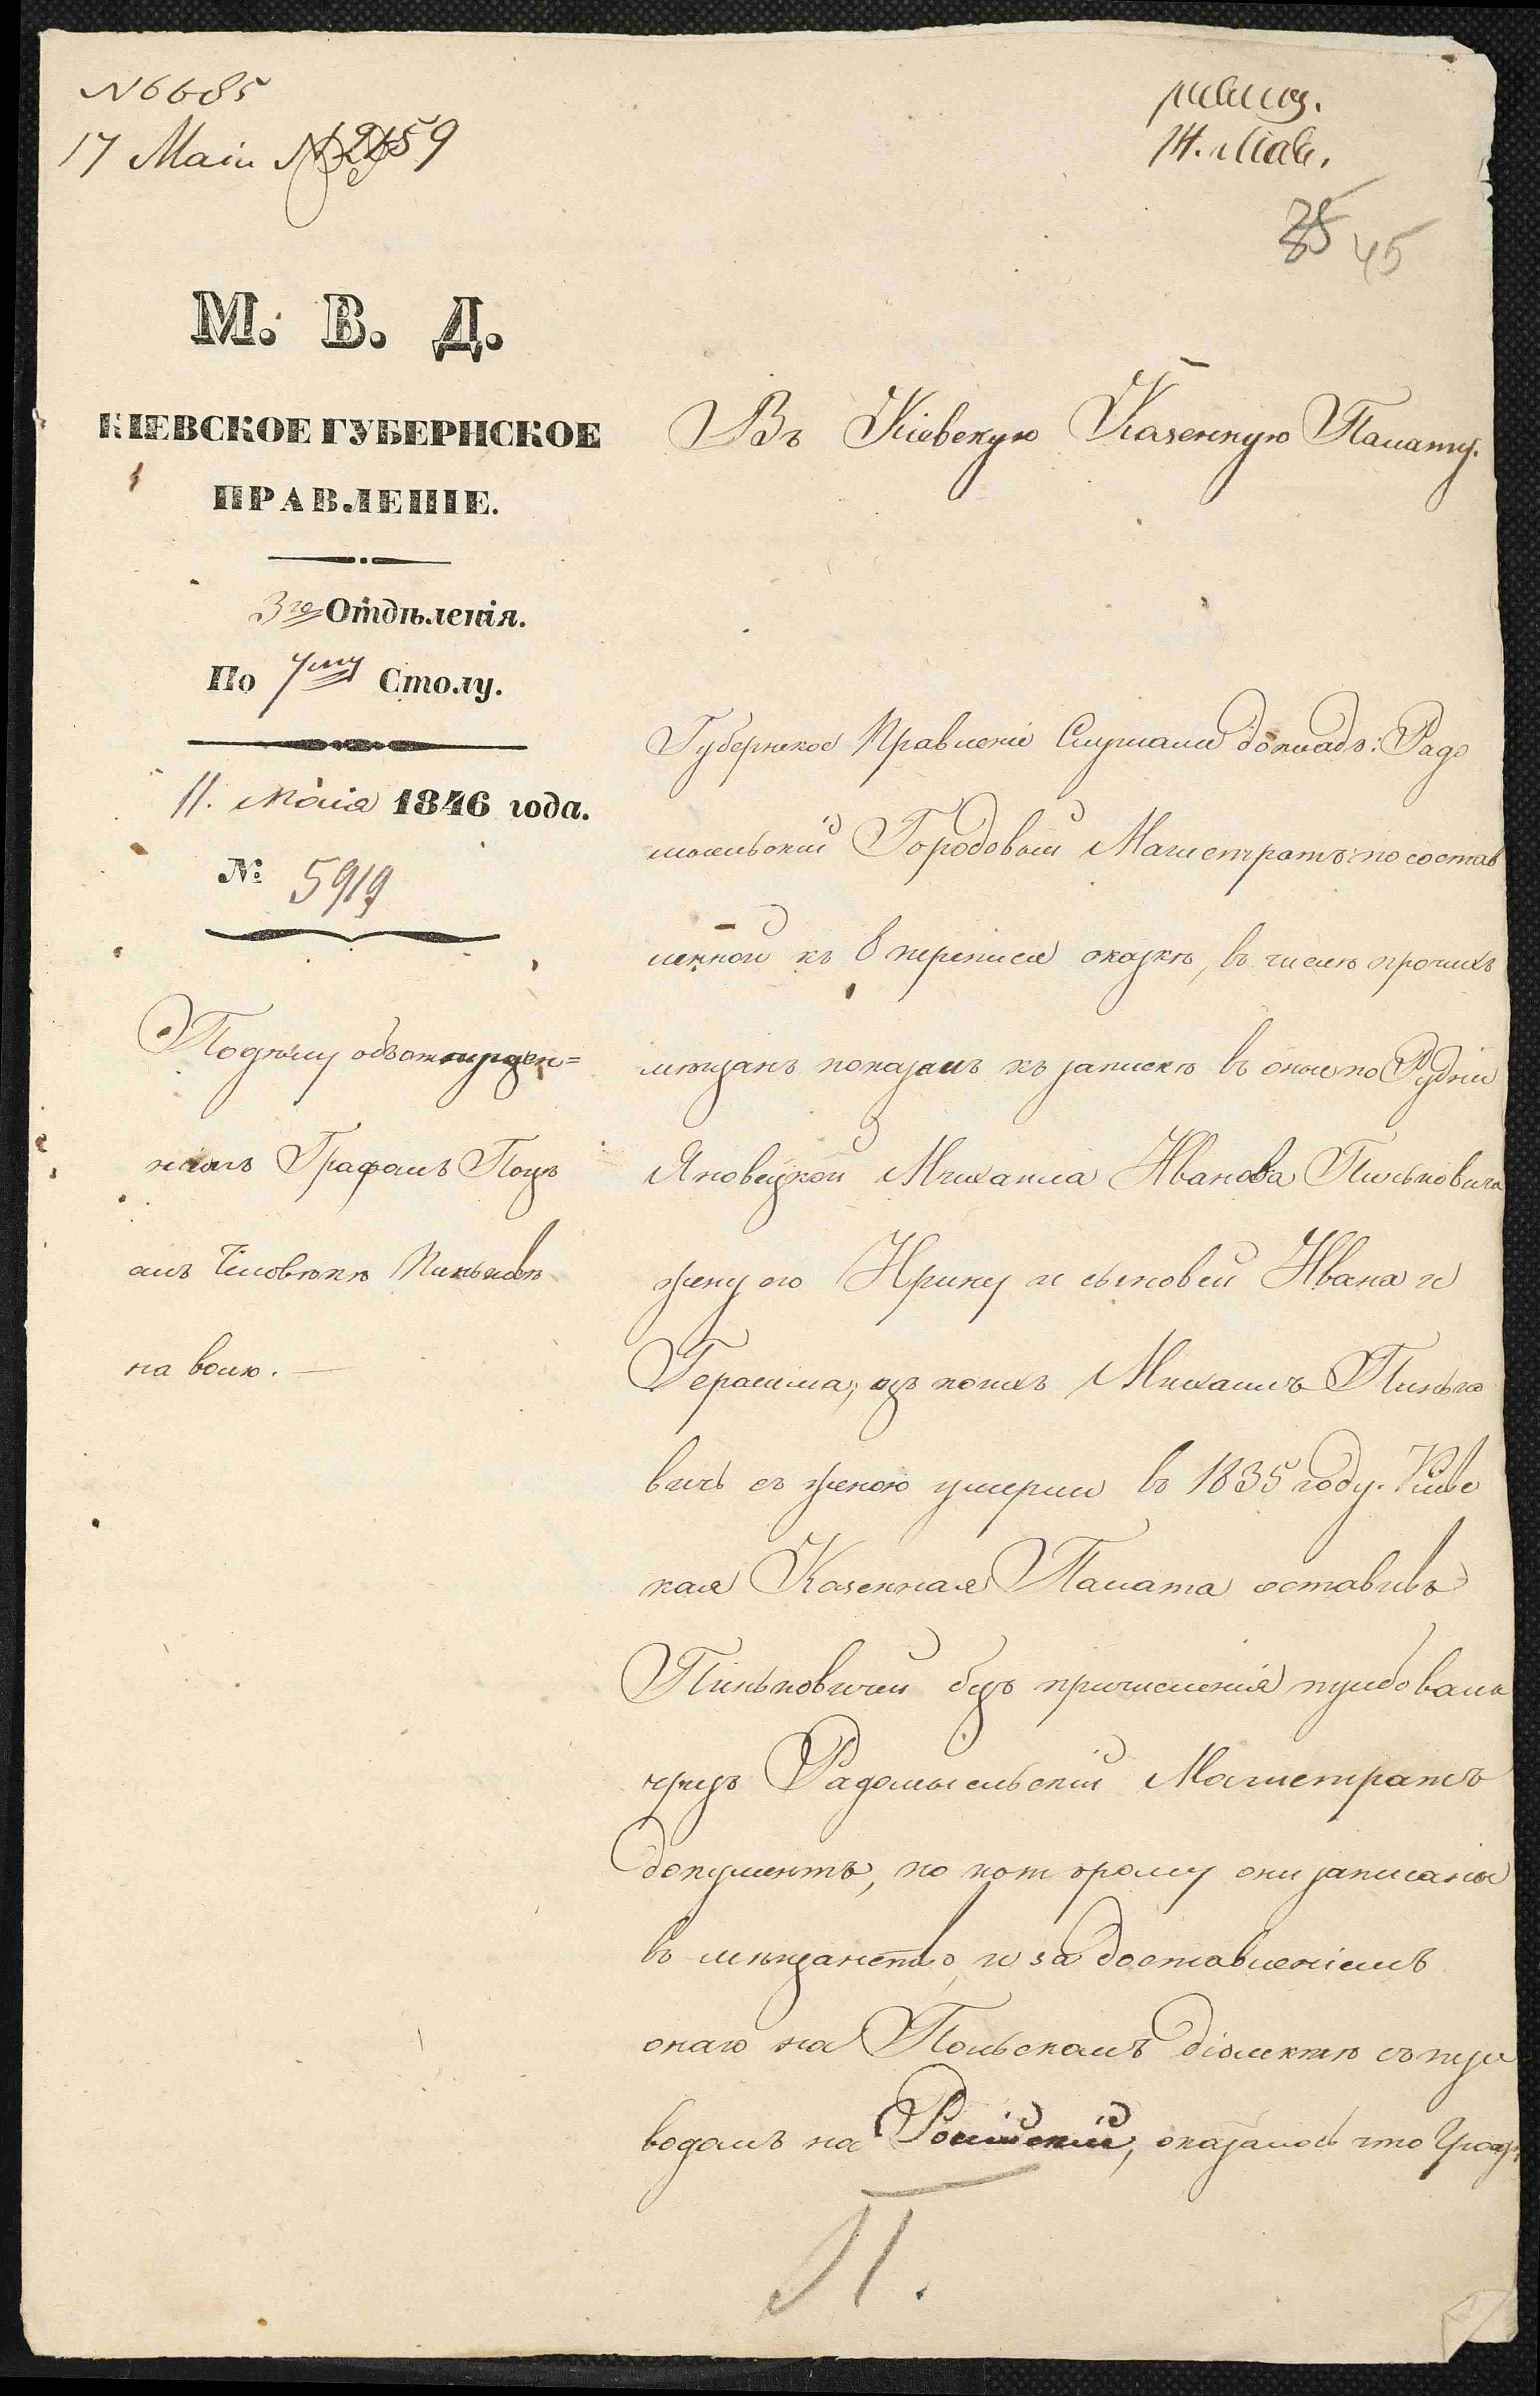 № 6685
17 Маія № 2659
ревиз.
35 45
М. В. Д.
КІЕВСКОЕ ГУБЕРНСКОЕ
ПРАВЛЕНІЕ.
3го Отдѣленія.
По 7му Столу.
11. Маія 1846 года.
№ 5919
По дѣлу объ отпущен=
номъ Графомъ Поц
омъ человѣкѣ
на волю. —
Въ Кіевскую Казенную Палату.
Губернское Правленіе Слушали докладъ: Радо
мысльскій Городовый Магистратъ по состав
ленной къ 8 переписи сказкѣ, въ числѣ прочихъ
мѣщанъ показалъ къ запискѣ въ оные по Рудни
Яновецкой Михаила Иванова Пиньковича
жену его Ирину и сыновей Ивана и
Герасима, изъ коихъ Михаилъ Пинько
вичъ съ женою умерли въ 1835 году. Кіевс
кая Казенная Палата оставивъ
Пиньковичей безъ причисленія требовала
чрезъ Радомысльскій Магистратъ
документъ, по которому они записаны
въ мѣщанство, и за доставленіемъ
онаго на Польскомъ діалектѣ съ пере
водомъ на Россійскій, оказалось что Граф
П.